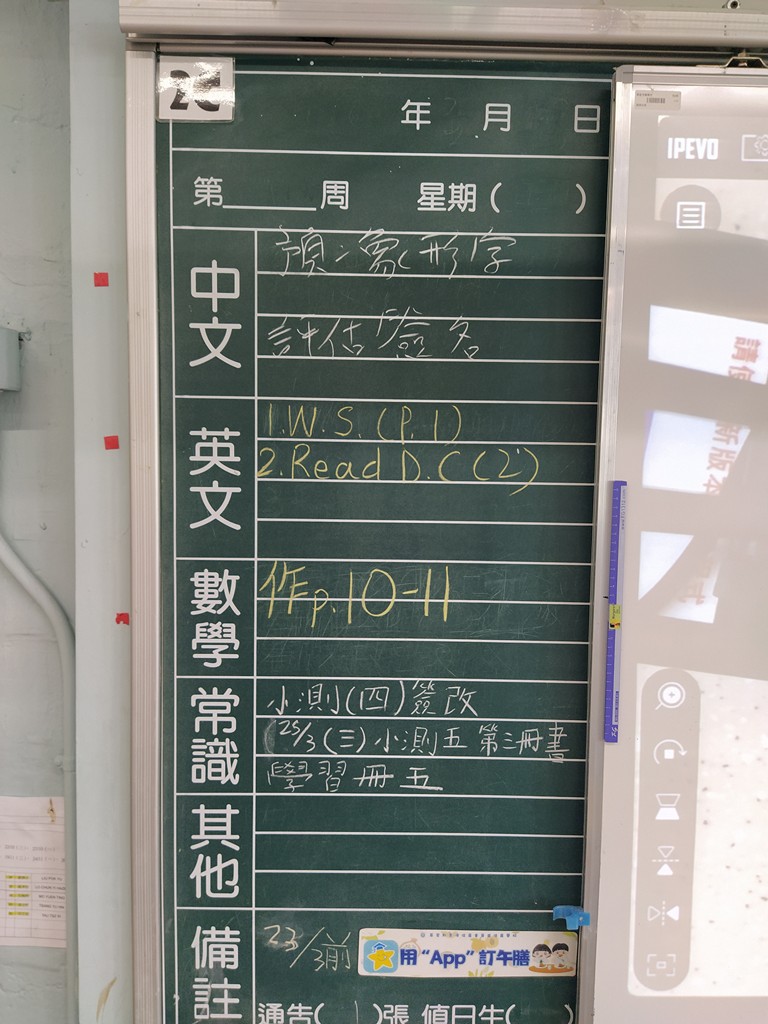 2C
年 月 日
第____周 星期( )
中文
預:象形字
評估簽名
英文
1.W.S.(P.1)
2.Read D.C(2)
數學
作p.10-11
常識
小測(四)簽改
(25/3(三)小測五 第三冊書
學習冊五
其他
備註
23/3前
用“App”訂午膳
通告( )張 值日生( )
IPEVO
請使
新版本